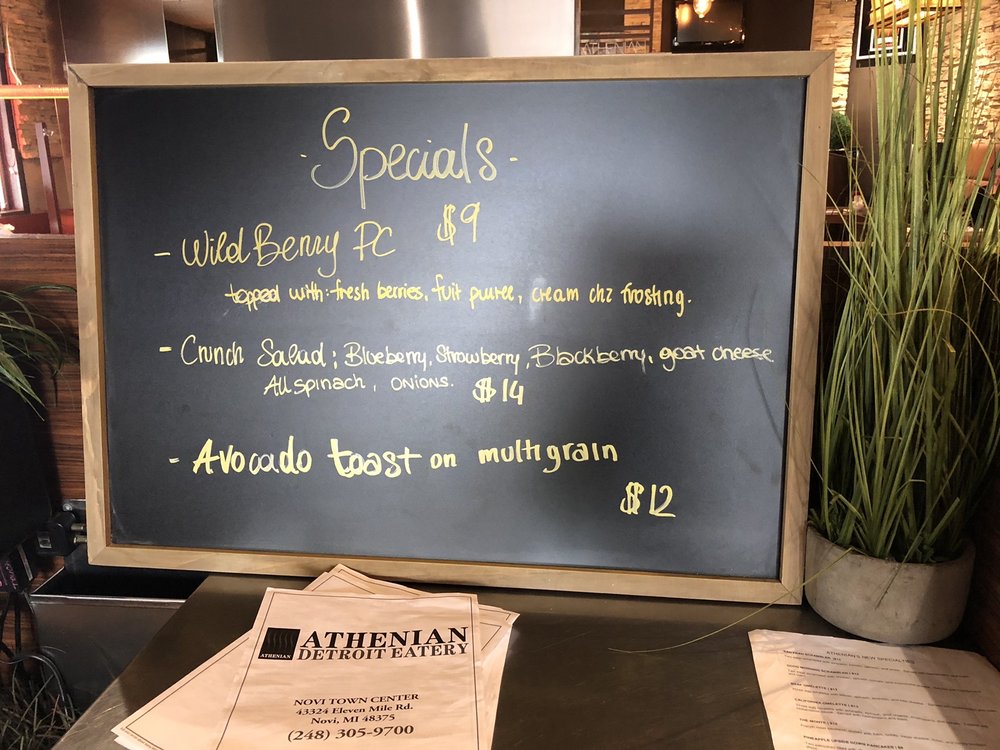 - Specials -
- Wild Berry PC $9
topped with: fresh berries, fuit puree, cream chz frosting.
- Crunch Salad; Blueberry, Strawberry, Blackberry, goat cheese
All spinach, onions. $14
- Avocado toast on multigrain
$12
ATHENIAN
ATHENIAN
DETROIT EATERY
NOVI TOWN CENTER
43324 Eleven Mile Rd.
Novi, MI 48375
(248) 305-9700
ATHENIAN'S NEW SPECIALTIES